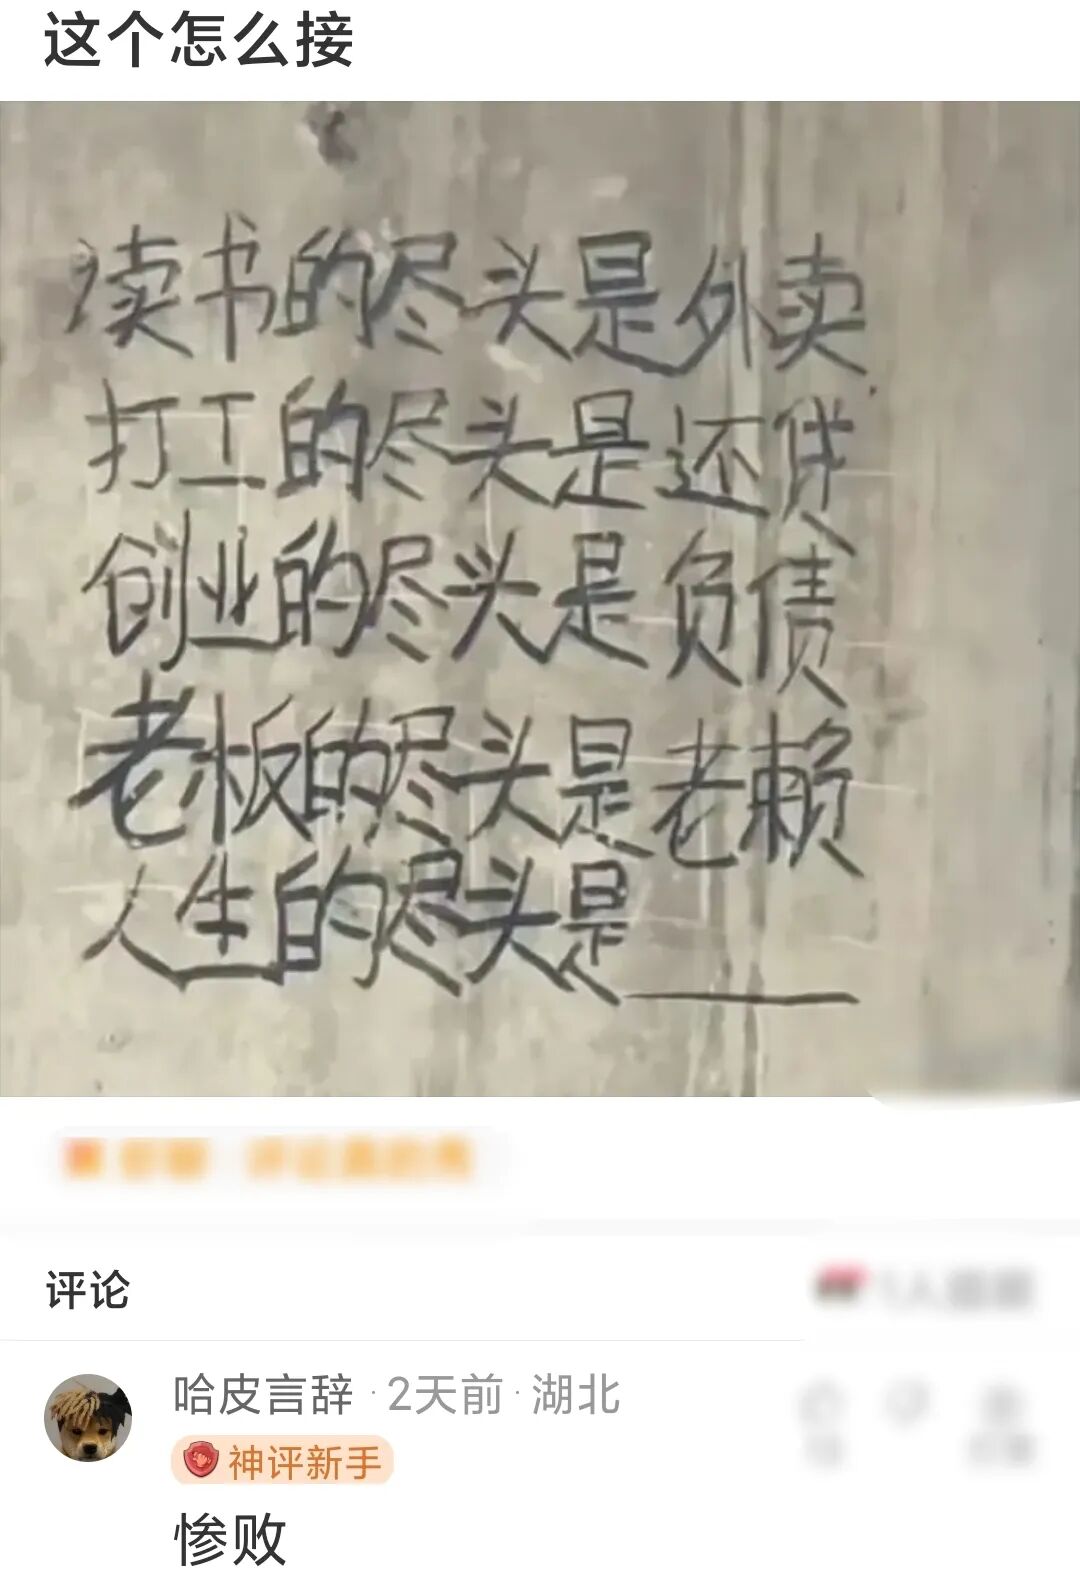 这个怎么接
读书的尽头是外卖
打工的尽头是还贷
创业的尽头是负债
老板的尽头是老赖
人生的尽头是______
评论
哈皮言辞 · 2天前 · 湖北
神评新手
惨败